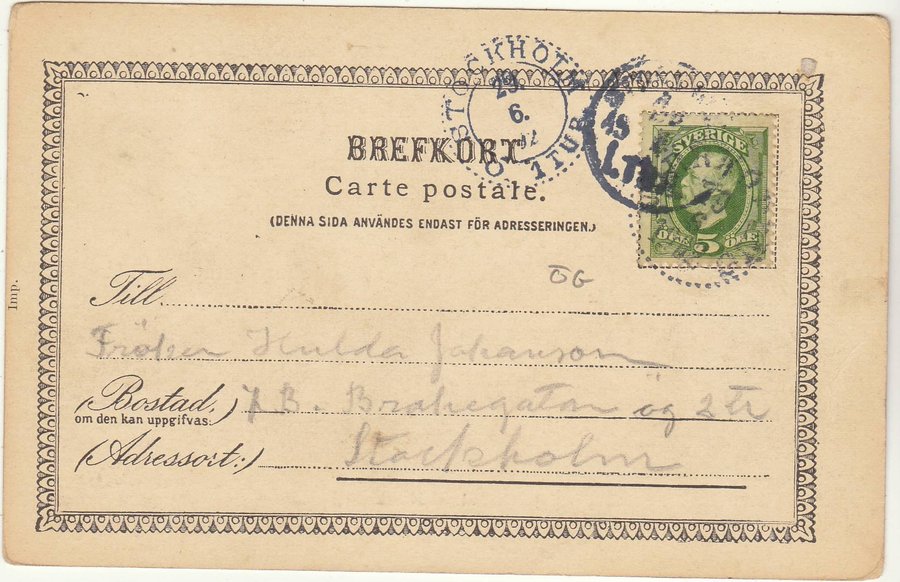 STOCKHOLM
29.
6.
1 TUR
49
1 TUR
SVERIGE
5 ÖRE
BREFKORT.
Carte postale.
(DENNA SIDA ANVÄNDES ENDAST FÖR ADRESSERINGEN.)
ÖG
Imp.
Till
Fröken Hulda Johanson
(Bostad,
om den kan uppgifvas:)
7 B. Brahegatan ög 2 tr
(Adressort:)
Stockholm